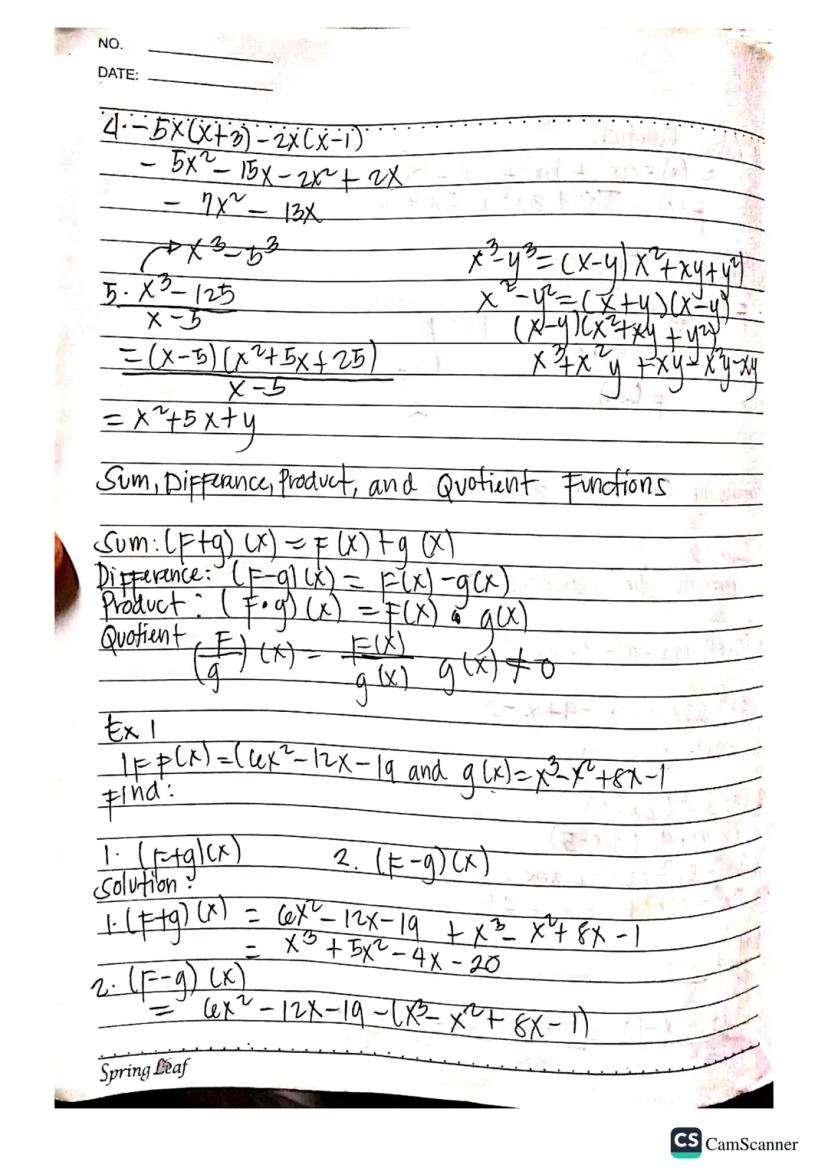 NO.
DATE:
4. - 5x(x+3) - 2x(x-1)
- 5x² - 15x - 2x² + 2x
- 7x² - 13x
x³-5³
5. x³-125
x-5
= (x-5)(x²+5x+25)
x-5
= x²+5x+y
x³-y³ = (x-y) x²+xy+y²)
x²-y² = (x+y)(x-y)
(x-y)(x²+xy+y²)
x³+x²y +xy-x²y-xy
Sum, Difference, Product, and Quotient Functions
Sum: (F+g)(x) = F(x) + g(x)
Difference: (F-g)(x) = F(x) - g(x)
Product: (F•g)(x) = F(x) • g(x)
Quotient (F/g)(x) = F(x)/g(x) g(x) ≠ 0
Ex 1
IF F(x) = (6x²-12x-19 and g(x) = x³-x²+8x-1
Find:
1. (F+g)(x) 2. (F-g)(x)
Solution:
1. (F+g)(x) = 6x²-12x-19 + x³-x²+8x-1
= x³+5x²-4x-20
2. (F-g)(x)
= 6x²-12x-19-(x³-x²+8x-1)
Spring Leaf
CS CamScanner